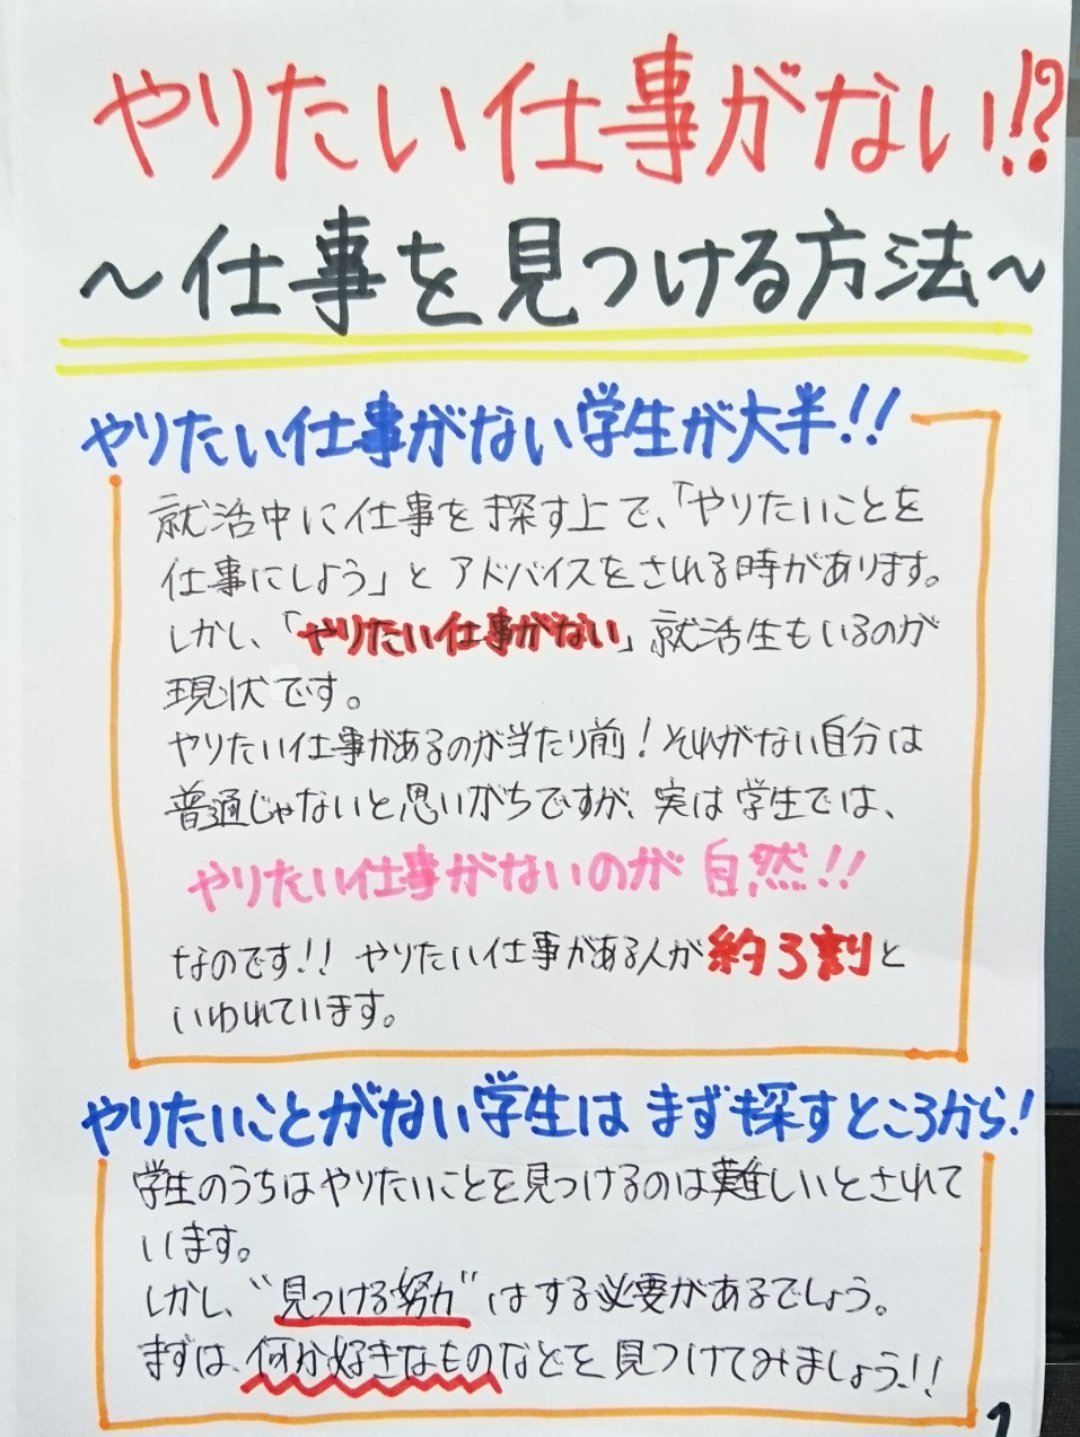 やりたい仕事がない!?
～仕事を見つける方法～
やりたい仕事がない学生が大半!!
就活中に仕事を探す上で、「やりたいことを
仕事にしよう」とアドバイスをされる時があります。
しかし、「やりたい仕事がない」就活生もいるのが
現状です。
やりたい仕事があるのが当たり前！それがない自分は
普通じゃないと思いがちですが、実は学生では、
やりたい仕事がないのが自然!!
なのです!! やりたい仕事がある人が約3割と
いわれています。
やりたいことがない学生はまず探すところから!
学生のうちはやりたいことを見つけるのは難しいとされて
います。
しかし、“見つける努力”はする必要があるでしょう。
まずは、何か好きなものなどを見つけてみましょう!!
1